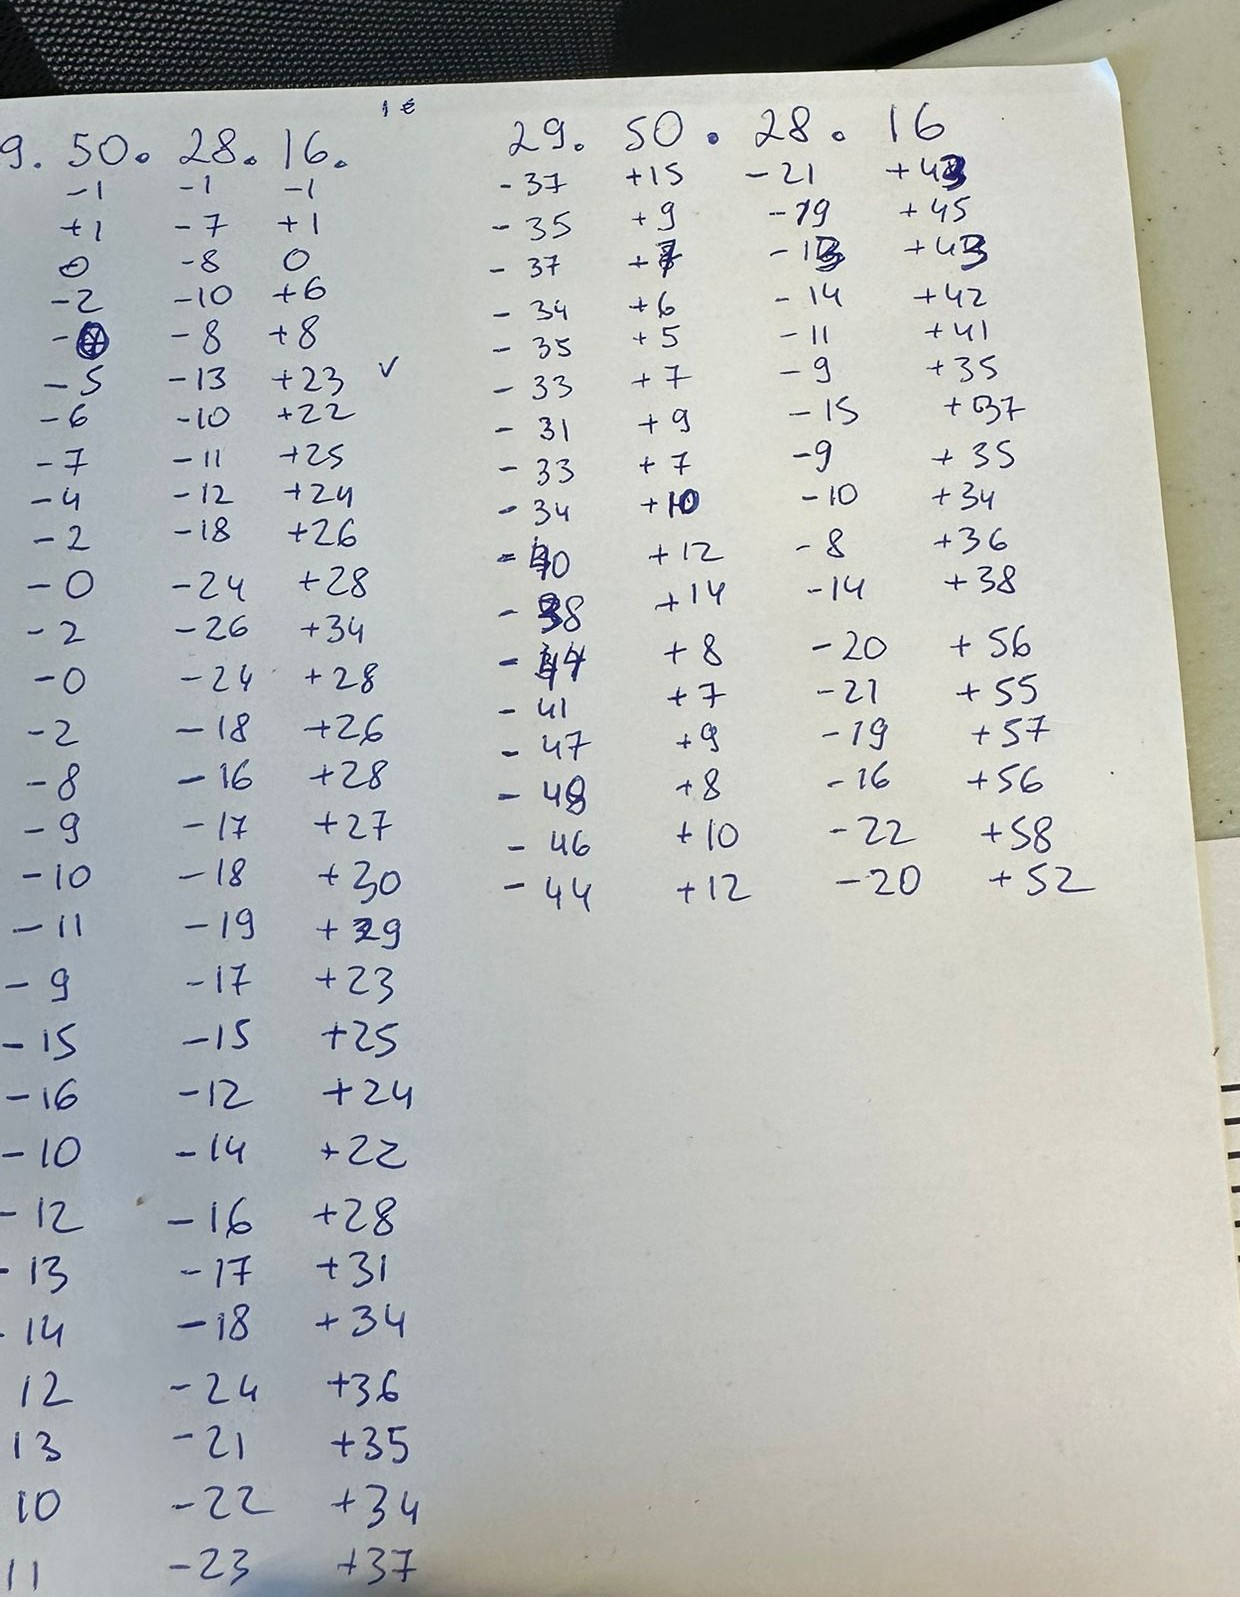 1 €
9. 50. 28. 16.
-1 -1 -1
+1 -7 +1
0 -8 0
-2 -10 +6
- -8 +8
-5 -13 +23 ✓
-6 -10 +22
-7 -11 +25
-4 -12 +24
-2 -18 +26
-0 -24 +28
-2 -26 +34
-0 -24 +28
-2 -18 +26
-8 -16 +28
-9 -17 +27
-10 -18 +30
-11 -19 +29
-9 -17 +23
-15 -15 +25
-16 -12 +24
-10 -14 +22
-12 -16 +28
-13 -17 +31
-14 -18 +34
12 -24 +36
13 -21 +35
10 -22 +34
11 -23 +37
29. 50. 28. 16
-37 +15 -21 +43
-35 +9 -19 +45
-37 +7 -13 +43
-34 +6 -14 +42
-35 +5 -11 +41
-33 +7 -9 +35
-31 +9 -15 +37
-33 +7 -9 +35
-34 +10 -10 +34
-40 +12 -8 +36
-38 +14 -14 +38
-44 +8 -20 +56
-41 +7 -21 +55
-47 +9 -19 +57
-48 +8 -16 +56
-46 +10 -22 +58
-44 +12 -20 +52